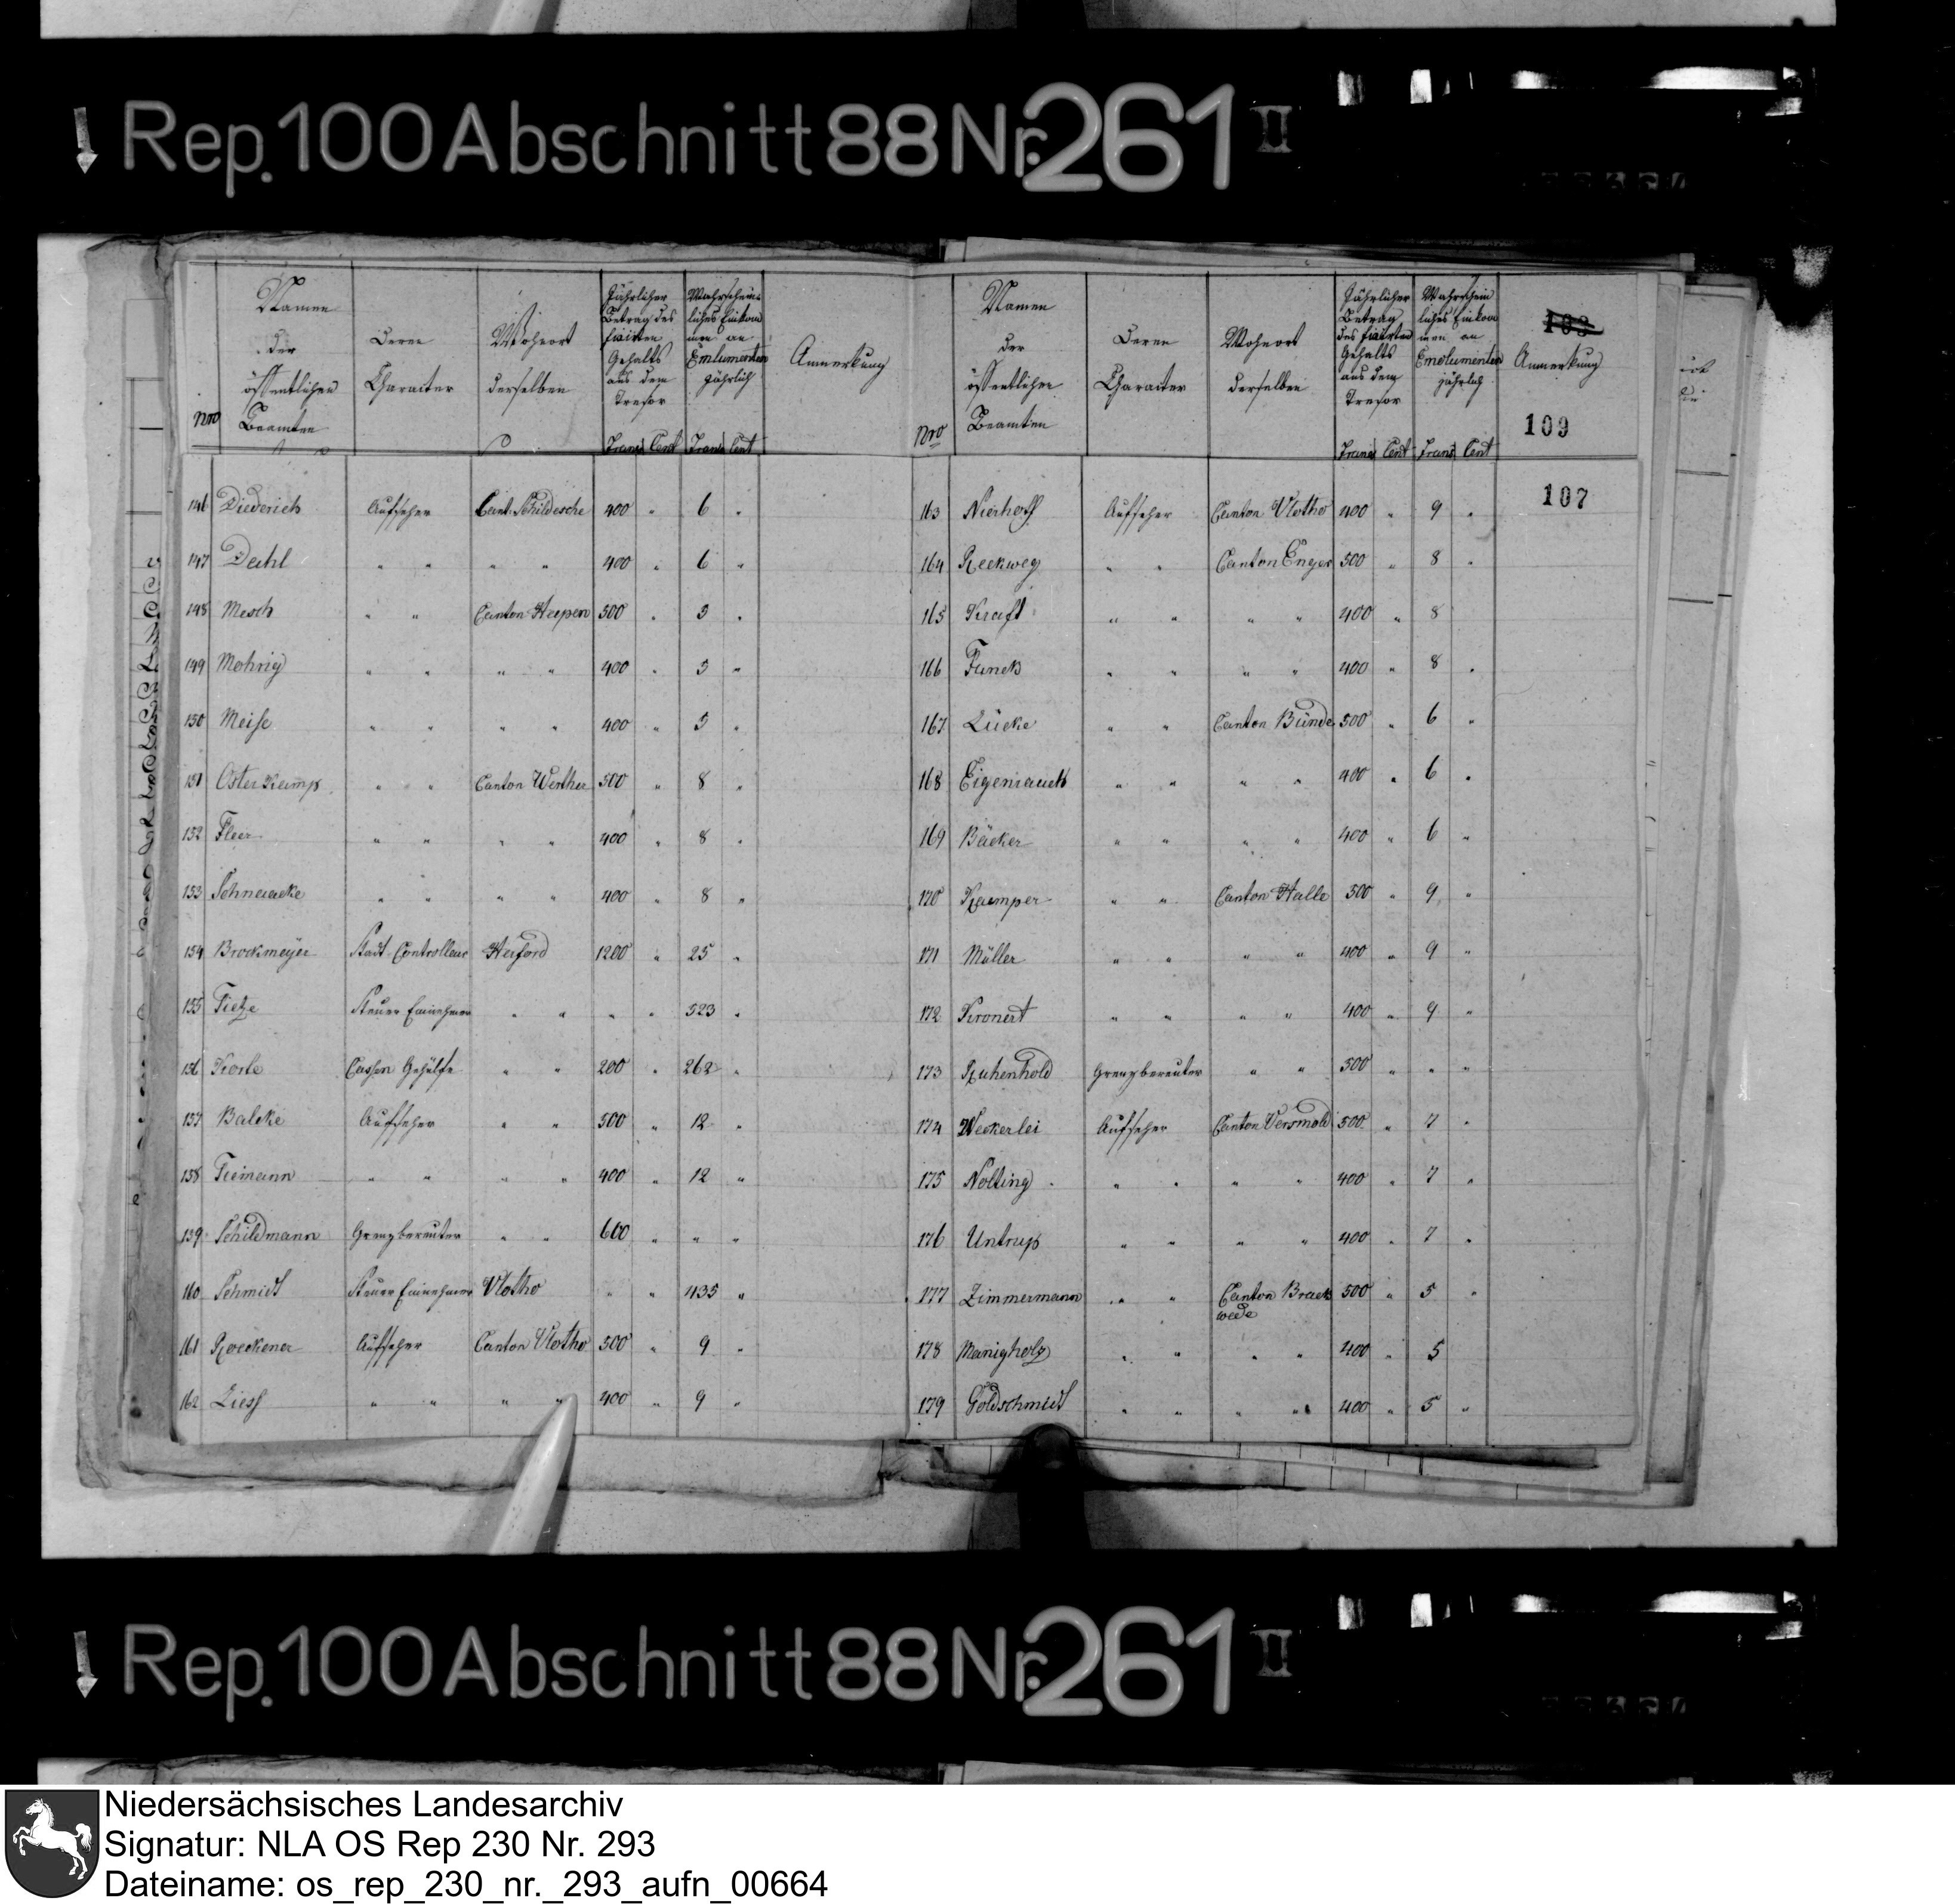 Rep. 100 Abschnitt 88 Nr. 261 II
Nro
Namen der öffentlichen Beamten
Deren Character
Wohnort derselben
Jährlicher Betrag des fixirten Gehalts aus dem Tresor
Franc Cent
Wahrscheinliches Einkommen an Emlumenten jährlich
Franc Cent
Anmerkung
146 Diederich Aufseher Cant. Schildesche 400 " 6 "
147 " " " " 400 " 6 "
148 Mesch " " Canton Heepen 500 " 5 "
149 Mohrig " " " " 400 " 5 "
150 Meise " " " " 400 " 5 "
151 Osterkamp " " Canton Werther 500 " 8 "
152 Fleer " " " " 400 " 8 "
153 " " " " 400 " 8 "
154 Brockmeyer Stadt Controlleur Herford 1200 " 25 "
155 Tietze Steuer Einnehmer " " " " 523 "
156 Korte Cassen Gehülfe " " 200 " 262 "
157 Balcke Aufseher " " 500 " 12 "
158 Tiemann " " " " 400 " 12 "
159 Schildmann Grenzbereuter " " 600 " " "
160 Schmidt Steuer Einnehmer Vlotho " " 435 "
161 Aufseher Canton Vlotho 500 " 9 "
162 Ziess " " " " 400 " 9 "
Nro
Namen der öffentlichen Beamten
Deren Character
Wohnort derselben
Jährlicher Betrag des fixirten Gehalts aus dem Tresor
Franc Cent
Wahrschein liches Einkommen an Emolumenten jährlich
Franc Cent
Anmerkung
109
107
163 Nierhoff Aufseher Canton Vlotho 400 " 9 "
164 Reekweg " " Canton Enger 500 " 8 "
165 Kraft " " " " 400 " 8
166 Funck " " " " 400 " 8 "
167 Lücke " " Canton Bünde 500 " 6 "
168 Eigenrauch " " " " 400 " 6 "
169 Bäcker " " " " 400 " 6 "
170 Kaemper " " Canton Halle 500 " 9 "
171 Müller " " " " 400 " 9 "
172 Kronert " " " " 400 " 9 "
173 Kuhenhold Grenzbereuter " " 500 " " "
174 Weckerlei Aufseher Canton Versmold 500 " 7 "
175 Nolting " " " " 400 " 7 "
176 Untrup " " " " 400 " 7 "
177 Zimmermann " " Canton Brack 500 " 5 "
wede
178 Manigholz " " " " 400 " 5
179 Goldschmidt " " " " 400 " 5 "
Rep. 100 Abschnitt 88 Nr. 261 II
Niedersächsisches Landesarchiv
Signatur: NLA OS Rep 230 Nr. 293
Dateiname: os_rep_230_nr._293_aufn_00664